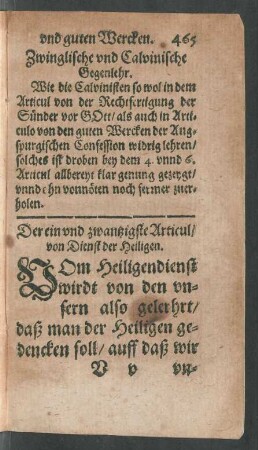 vnd guten Wercken. 465
Zwinglische vnd Calvinische
Gegenlehr.
Wie die Calvinisten so wol in dem
Articul von der Rechtfertigung der
Sünder vor GOtt/ als auch in Arti-
culo von den guten Wercken der Aug-
spurgischen Confession widrig lehren/
solches ist droben bey dem 4. vnnd 6.
Articul allbereyt klar genung gezeygt/
vnnd ohn vonnöten noch ferner zuer-
holen.
Der ein vnd zwantzigste Articul/
von Dienst der Heiligen.
VOm Heiligendienst
wirdt von den vn-
sern also gelerhrt/
daß man der Heiligen ge-
dencken soll/ auff daß wir
V v vn-